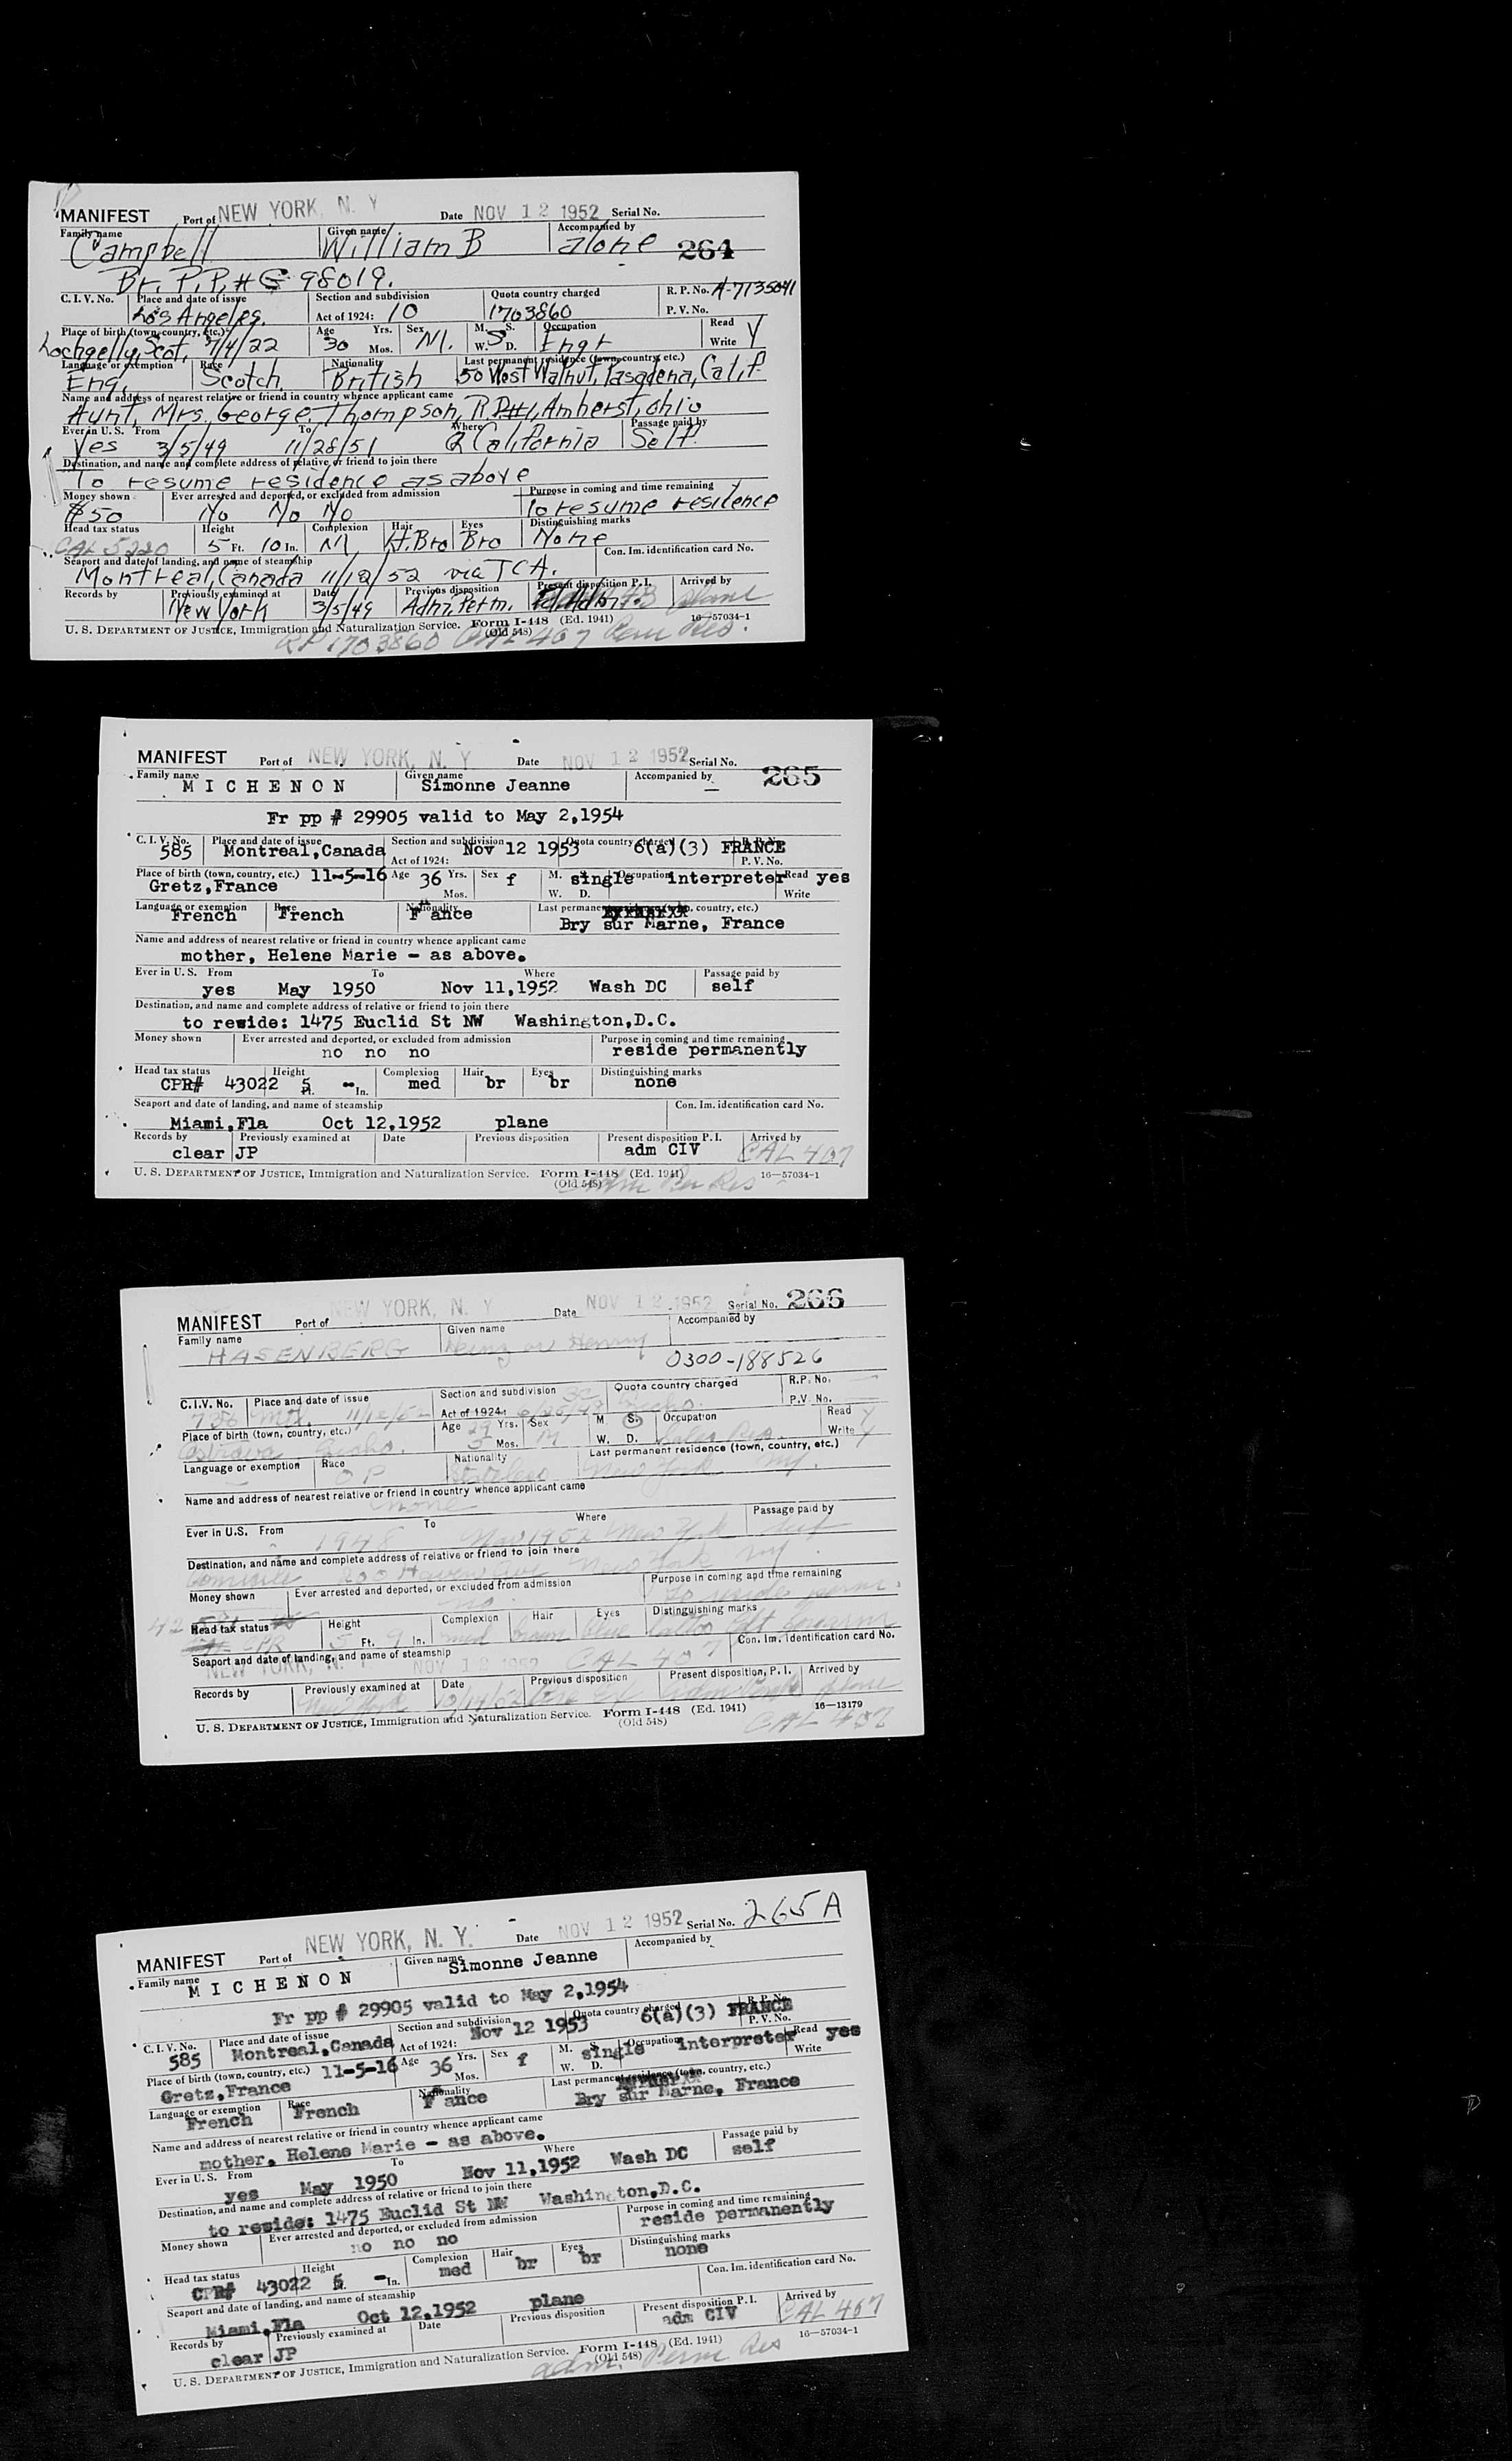 MANIFEST Port of NEW YORK, N. Y Date NOV 12 1952 Serial No.
Family name Given name Accompanied by
Campbell William B alone 264
Br. P.P. # G 98019.
C. I. V. No. Place and date of issue Section and subdivision Quota country charged R. P. No. A-7135041
Los Angeles. Act of 1924: 10 1703860 P. V. No.
Place of birth (town, country, etc.) Age Yrs. Sex M. S. Occupation Read
Lochgelly, Scot. 7/4/22 30 Mos. M. W. S D. Engr Write Y
Language or exemption Race Nationality Last permanent residence (town, country, etc.)
Eng. Scotch British 50 West Walnut, Pasadena, Calif.
Name and address of nearest relative or friend in country whence applicant came
Aunt, Mrs. George Thompson, R.D.#1, Amherst, Ohio
Ever in U. S. From To Where Passage paid by
Yes 3/5/49 11/28/51 California Self.
Destination, and name and complete address of relative or friend to join there
To resume residence as above
Money shown Ever arrested and deported, or excluded from admission Purpose in coming and time remaining
$50 No No No To resume residence
Head tax status Height Complexion Hair Eyes Distinguishing marks
CAL 5220 5 Ft. 10 In. M Lt. Bro Bro None
Seaport and date of landing, and name of steamship Con. Im. identification card No.
Montreal, Canada 11/12/52 via TCA.
Records by Previously examined at Date Previous disposition Present disposition P. I. Arrived by
New York 3/5/49 Adm. Perm. plane
U. S. DEPARTMENT OF JUSTICE, Immigration and Naturalization Service. Form I-448 (Ed. 1941) 16—57034-1
(Old 548)
RP 1703860 CAL 407 Perm Res.
MANIFEST Port of NEW YORK, N. Y Date NOV 12 1952 Serial No.
Family name Given name Accompanied by 265
MICHENON Simonne Jeanne —
Fr pp # 29905 valid to May 2,1954
C. I. V. No. Place and date of issue Section and subdivision Quota country charged R. P. No.
585 Montreal,Canada Act of 1924: Nov 12 1953 6(a)(3) FRANCE P. V. No.
Place of birth (town, country, etc.) 11-5-16 Age 36 Yrs. Sex f M. single Occupation interpreter Read yes
Gretz,France Mos. W. D. Write
Language or exemption Race Nationality Last permanent residence (town, country, etc.)
French French F ance Bry sur Marne, France
Name and address of nearest relative or friend in country whence applicant came
mother, Helene Marie - as above.
Ever in U. S. From To Where Passage paid by
yes May 1950 Nov 11,1952 Wash DC self
Destination, and name and complete address of relative or friend to join there
to reside: 1475 Euclid St NW Washington,D.C.
Money shown Ever arrested and deported, or excluded from admission Purpose in coming and time remaining
no no no reside permanently
Head tax status Height Complexion Hair Eyes Distinguishing marks
CPR# 43022 5 Ft. - In. med br br none
Seaport and date of landing, and name of steamship Con. Im. identification card No.
Miami,Fla Oct 12,1952 plane
Records by Previously examined at Date Previous disposition Present disposition P. I. Arrived by
clear JP adm CIV CAL 407
U. S. DEPARTMENT OF JUSTICE, Immigration and Naturalization Service. Form I-448 (Ed. 1941) 16—57034-1
(Old 548) Adm Per Res
MANIFEST Port of NEW YORK, N. Y Date NOV 12 1952 Serial No. 266
Family name Given name Accompanied by
HASENBERG Heinz or Henry
0300-188526
C.I.V. No. Place and date of issue Section and subdivision Quota country charged R.P. No.
736 Mtl. 11/12/52 Act of 1924: P.V. No.
Place of birth (town, country, etc.) Age 29 Yrs. Sex M. S. Occupation Read Y
Ostrava 5 Mos. M W. D. Sales Rep. Write Y
Language or exemption Race Nationality Last permanent residence (town, country, etc.)
Stateless New York NY.
Name and address of nearest relative or friend in country whence applicant came
none
Ever in U.S. From To Where Passage paid by
1948 Nov 1952 New York self
Destination, and name and complete address of relative or friend to join there
Haven Ave New York NY.
Money shown Ever arrested and deported, or excluded from admission Purpose in coming and time remaining
no To reside perm.
Head tax status Height Complexion Hair Eyes Distinguishing marks
CPR 5 Ft. 9 In. med brown blue
Seaport and date of landing, and name of steamship Con. Im. identification card No.
NEW YORK, N. Y NOV 12 1952 CAL 407
Records by Previously examined at Date Previous disposition Present disposition, P. I. Arrived by
New York plane
U. S. DEPARTMENT OF JUSTICE, Immigration and Naturalization Service. Form I-448 (Ed. 1941) 16—13179
(Old 548) CAL 407
MANIFEST Port of NEW YORK, N. Y. Date NOV 12 1952 Serial No. 265A
Family name Given name Accompanied by
MICHENON Simonne Jeanne
Fr pp # 29905 valid to May 2,1954
C. I. V. No. Place and date of issue Section and subdivision Quota country charged R. P. No.
585 Montreal,Canada Act of 1924: Nov 12 1953 6(a)(3) FRANCE P. V. No.
Place of birth (town, country, etc.) 11-5-16 Age 36 Yrs. Sex f M. S. single Occupation interpreter Read yes
Gretz,France Mos. W. D. Write
Language or exemption Race Nationality Last permanent residence (town, country, etc.)
French French F ance Bry sur Marne, France
Name and address of nearest relative or friend in country whence applicant came
mother, Helene Marie - as above.
Ever in U. S. From To Where Passage paid by
yes May 1950 Nov 11,1952 Wash DC self
Destination, and name and complete address of relative or friend to join there
to reside: 1475 Euclid St NW Washington,D.C.
Money shown Ever arrested and deported, or excluded from admission Purpose in coming and time remaining
no no no reside permanently
Head tax status Height Complexion Hair Eyes Distinguishing marks
CPR# 43022 5 Ft. - In. med br br none
Seaport and date of landing, and name of steamship Con. Im. identification card No.
Miami,Fla Oct 12,1952 plane
Records by Previously examined at Date Previous disposition Present disposition P. I. Arrived by
clear JP adm CIV CAL 407
U. S. DEPARTMENT OF JUSTICE, Immigration and Naturalization Service. Form I-448 (Ed. 1941) 16—57034-1
(Old 548)
adm. Perm Res